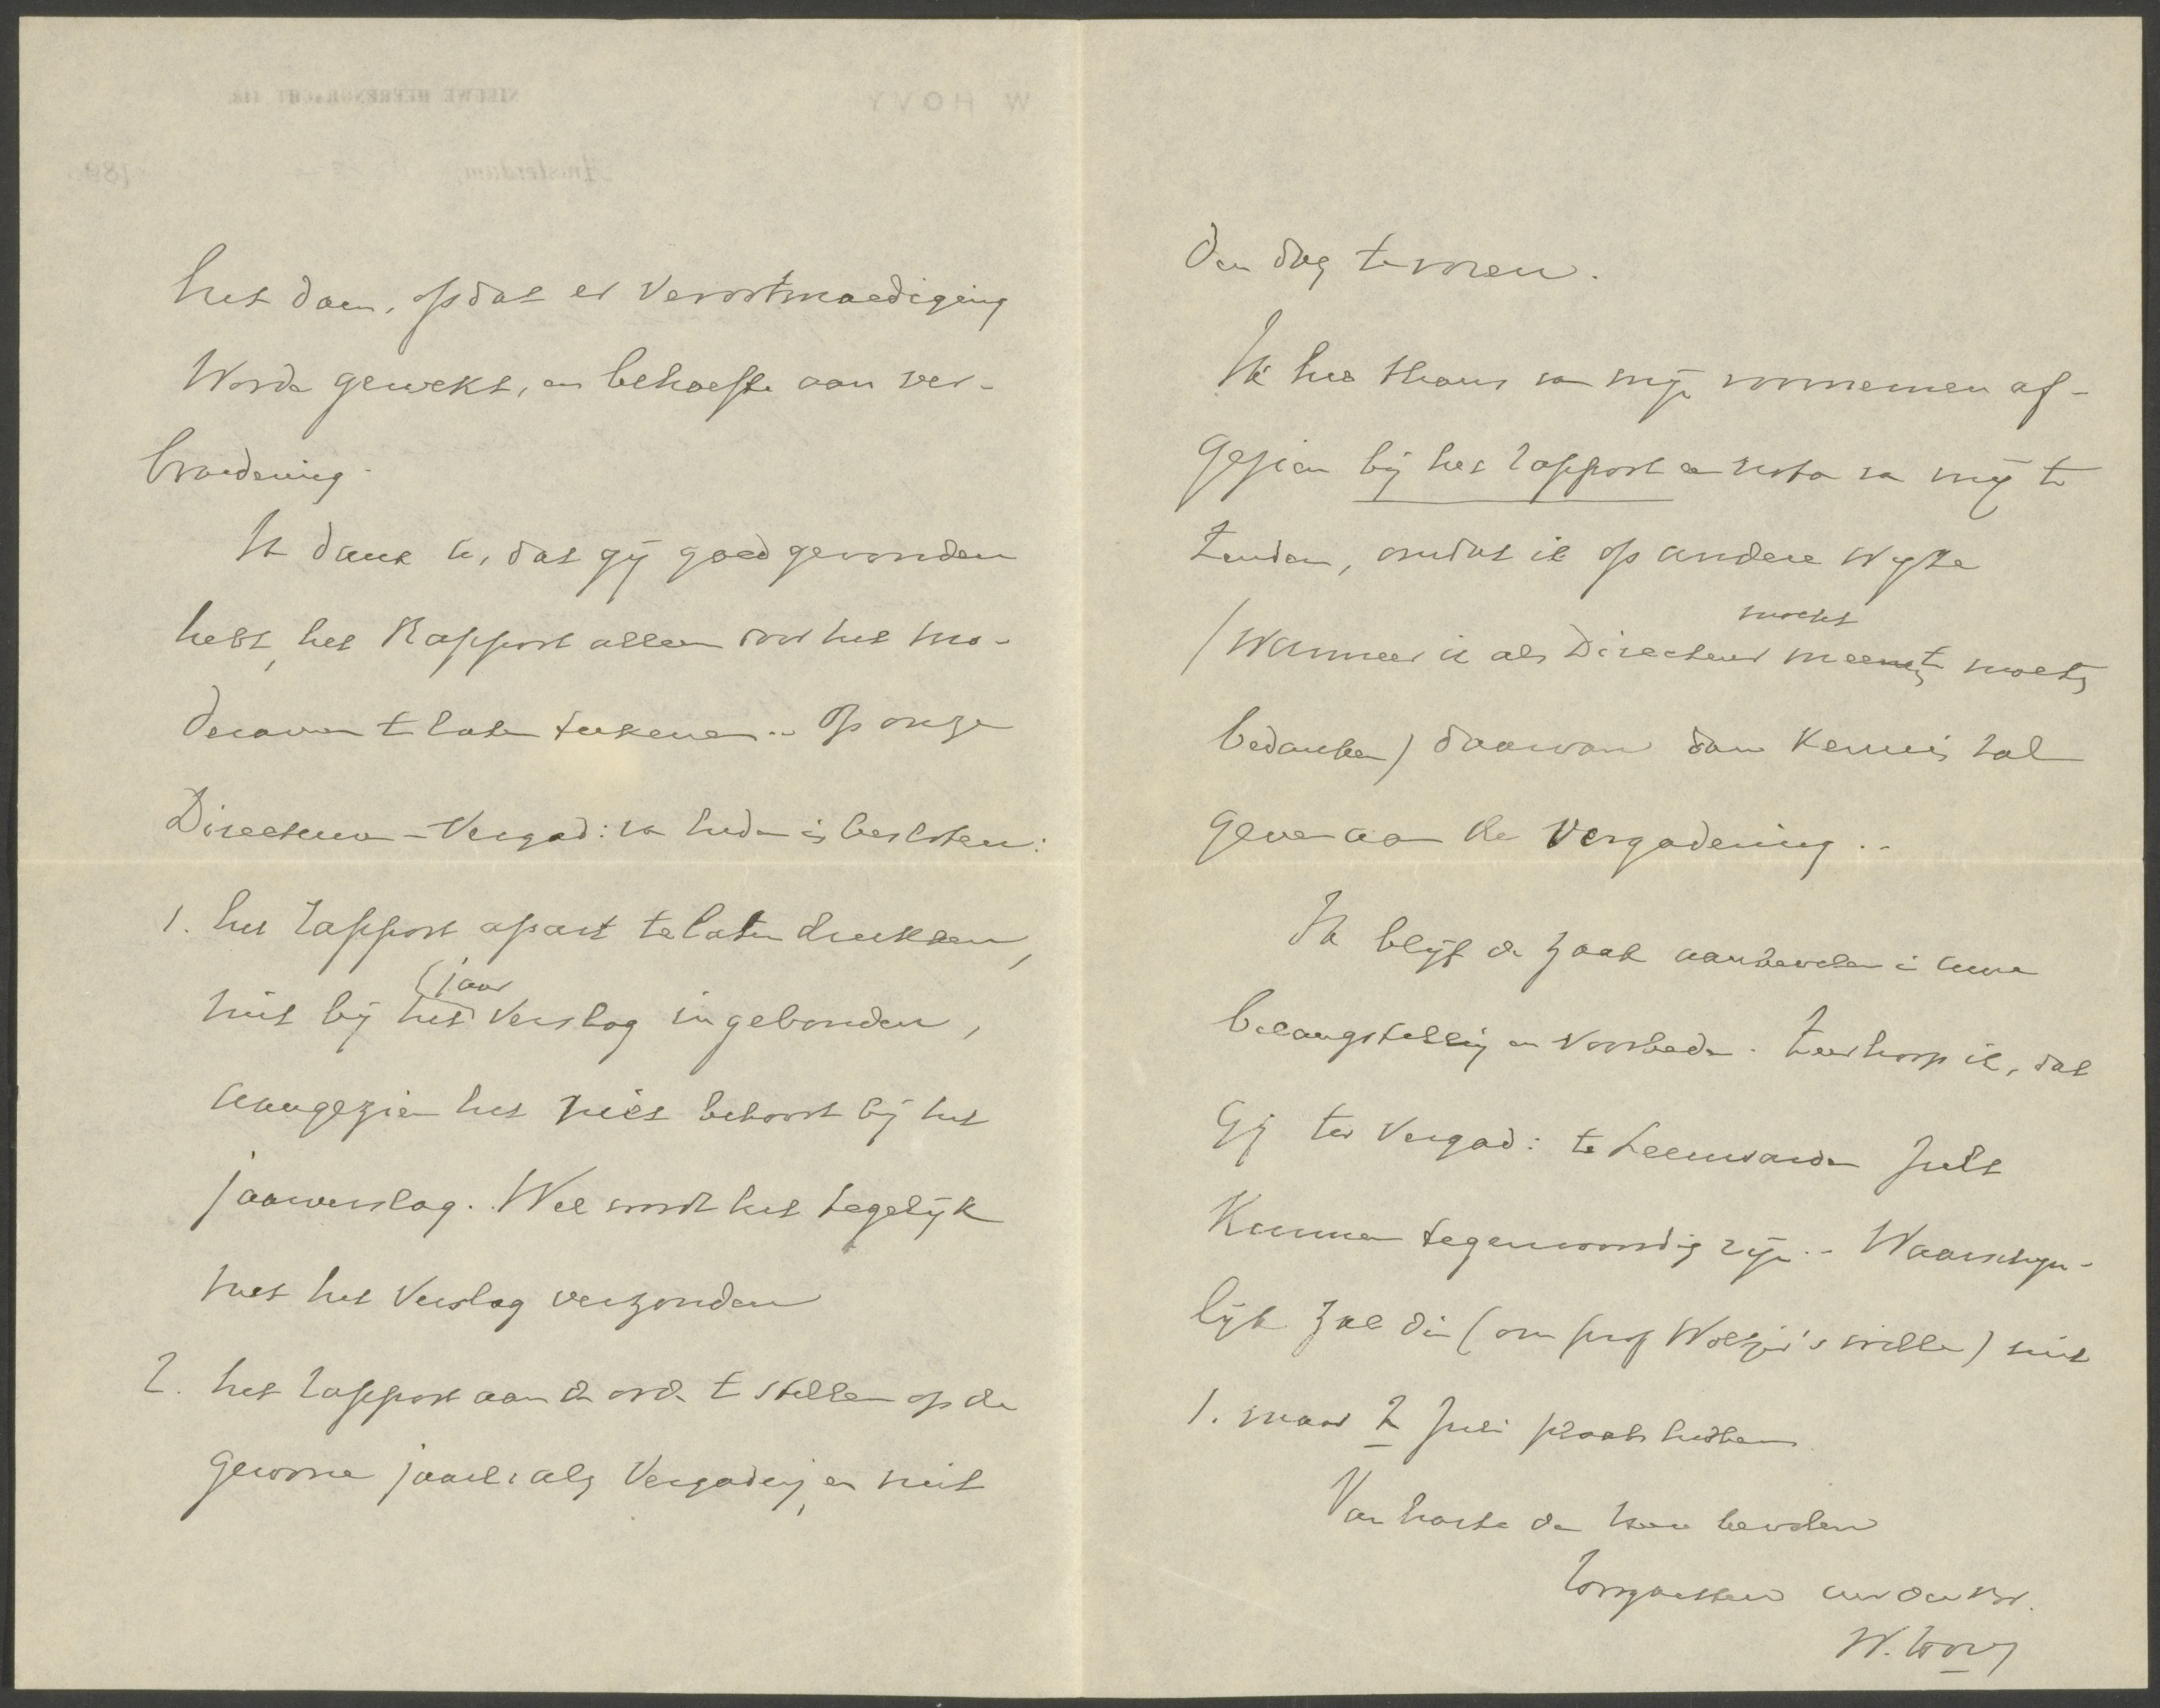 het doen, opdat er verootmoediging
worde gewekt, en behoefte aan ver-
broedering.
Ik dank u, dat gij goedgevonden
hebt, het Rapport alleen door het mo-
deramen te laten teekenen.. Op onze
Directeuren-Vergad: van heden is besloten:
1. het rapport apart te laten drukken,
niet bij het jaar verslag ingebonden,
aangezien het niet behoort bij het
jaarverslag. Wel wordt het tegelijk
met het Verslag verzonden
2. het rapport aan de orde te stellen op de
gewone jaarl: alg Vergadering, en niet
den dag te voren.
Ik heb thans van mijn voornemen af-
gezien bij het rapport een nota van mij te
zenden, omdat ik op andere wijze
(wanneer ik als Directeur mocht meenen te moeten
bedanken) daarvan dan kennis zal
geven aan de Vergadering..
Ik blijf de zaak aanbevelen in uwe
belangstelling en voorbede. Zeer hoop ik, dat
Gij ter Vergad: te Leeuwarden zult
kunnen tegenwoordig zijn.. Waarschijn-
lijk zal die (om prof Woltjer's wille) niet
1. maar 2 Juli plaats hebben
Van harte den Heere bevolen
Hoogachtend uw dw br.
W. Hovy
W HOVY
NIEUWE HEERENGRACHT
Amsterdam,
189